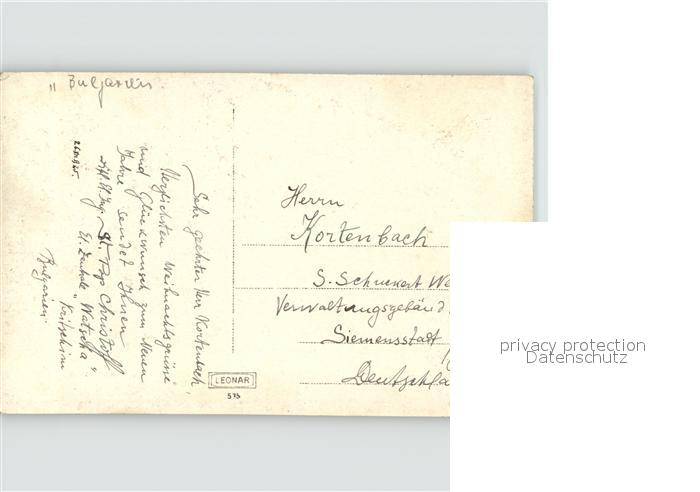 " Bulgarien
Sehr geehrter Herr Kortenbach,
Herzlichsten Weihnachtsgrüsse
und Glückwunsch zum Neuen
Jahre sendet Ihnen
Dipl. El. Ing. St. Pop Christoff
El. Zentrale "Watscha"
Kritschim
Bulgarien.
Herrn
Kortenbach
S. Schuckert We
Verwaltungsgebäud
Siemensstadt
Deutschla
LEONAR
575
privacy protection
Datenschutz